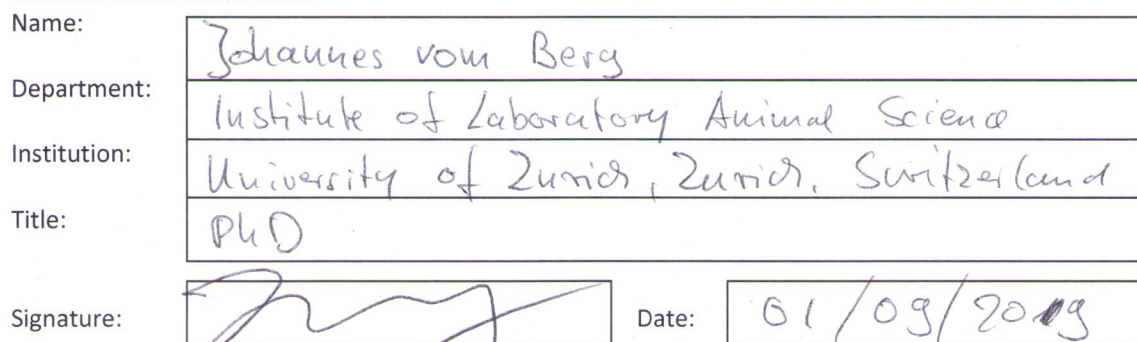 Name: Johannes vom Berg
Department: Institute of Laboratory Animal Science
Institution: University of Zurich, Zurich, Switzerland
Title: PhD
Signature: Date: 01/09/2019